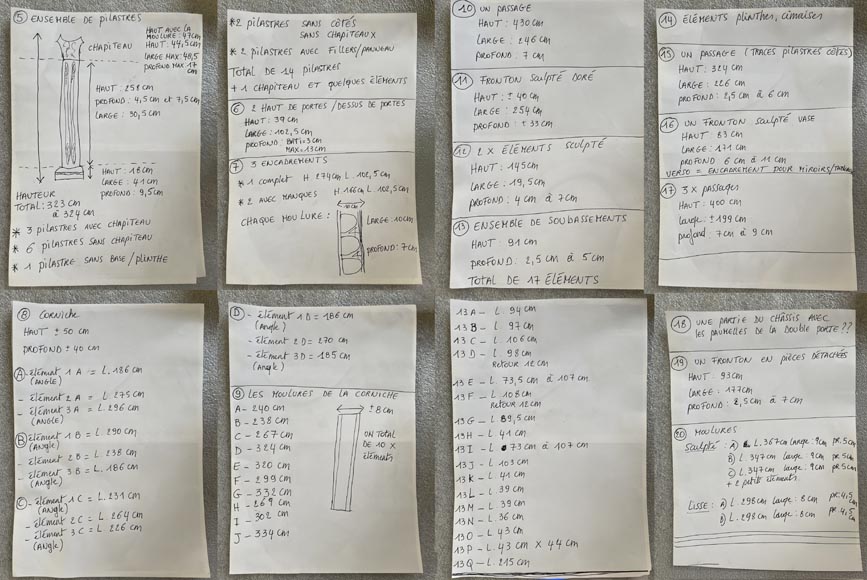 ⑤ ENSEMBLE DE PILASTRES
HAUT AVEC LA
MOULURE : 47cm
HAUT : 44,5cm
LARGE MAX: 48,5
PROFOND MAX 17
cm
CHAPITEAU
HAUT : 258 cm
PROFOND : 4,5cm et 7,5cm
LARGE : 30,5cm
HAUT : 18cm
LARGE : 41cm
PROFOND : 9,5cm
HAUTEUR
TOTAL: 323 cm
à 324 cm
* 3 PILASTRES AVEC CHAPITEAU
* 6 PILASTRES SANS CHAPITEAU
* 1 PILASTRE SANS BASE/PLINTHE
*2 PILASTRES SANS CÔTÉS
SANS CHAPITEAUX
*2 PILASTRES AVEC FILLERS/PANNEAU
TOTAL DE 14 PILASTRES
+ 1 CHAPITEAU ET QUELQUES ÉLÉMENTS
⑥ 2 HAUT DE PORTES/DESSUS DE PORTES
HAUT : 39cm
LARGE : 102,5cm
PROFOND : BATI=3cm
MAX=13cm
⑦ 3 ENCADREMENTS
* 1 complet H 274cm L. 102,5cm
* 2 AVEC MANQUES H.166cm L. 102,5cm
10 cm
CHAQUE MOULURE :
LARGE: 10cm
PROFOND: 7cm
⑩ UN PASSAGE
HAUT : 430cm
LARGE : 246cm
PROFOND : 7cm
⑪ FRONTON SCULPTÉ DORÉ
HAUT : ± 40cm
LARGE : 254cm
PROFOND : ± 33cm
⑫ 2 X ÉLÉMENTS SCULPTÉ
HAUT : 145cm
LARGE : 19,5cm
PROFOND : 4cm à 7cm
⑬ ENSEMBLE DE SOUBASSEMENTS
HAUT : 91cm
PROFOND : 2,5cm à 5cm
TOTAL DE 17 ÉLÉMENTS
⑭ ÉLÉMENTS plinthes, cimaises
⑮ UN PASSAGE (TRACES PILASTRES CÔTÉS)
HAUT : 324
LARGE : 226
PROFOND : 2,5cm à 6cm
⑯ UN FRONTON SCULPTÉ VASE
HAUT : 83cm
LARGE : 171cm
PROFOND 6cm à 11cm
VERSO = ENCADREMENT POUR MIROIRS/
⑰ 3 x passages
HAUT : 400cm
large : ±199cm
profond : 7cm à 9cm
⑧ Corniche
HAUT ± 50 cm
PROFOND ± 40 cm
Ⓐ - élément 1A = L. 186cm
(ANGLE)
- élément 2A = L. 275cm
- élément 3A = L. 296cm
(ANGLE)
Ⓑ - élément 1B = L. 290cm
(Angle)
- élément 2B = L. 238cm
- élément 3B = L. 186cm
(Angle)
Ⓒ - élément 1C = L. 231cm
(Angle)
- élément 2C = L. 264cm
- élément 3C = L. 226cm
(Angle)
Ⓓ - élément 1D = 186cm
(Angle)
- élément 2D = 270 cm
- élément 3D = 185cm
(Angle)
⑨ LES MOULURES DE LA CORNICHE
A- 240cm
B- 238cm
C- 267cm
D- 324cm
E- 320cm
F- 299cm
G- 332cm
H- 269cm
I- 302cm
J- 334cm
± 8cm
UN TOTAL
DE 10 X
éléments
13A - L. 94cm
13B - L. 97cm
13C - L. 106cm
13D - L. 98cm
RETOUR 12cm
13E - L. 73,5cm à 107cm
13F - L. 108cm
RETOUR 12cm
13G - L. 89,5cm
13H - L. 41cm
13I - L. 73cm à 107cm
13J - L. 103cm
13K - L. 41cm
13L - L. 39cm
13M - L. 39cm
13N - L. 36cm
13O - L. 43cm
13P - L. 43cm X 44cm
13Q - L. 215cm
⑱ UNE PARTIE DU CHÂSSIS AVEC
LES PAUMELLES DE LA DOUBLE PORTE??
⑲ UN FRONTON EN PIÈCES DÉTACHÉES
HAUT : 93cm
LARGE : 177cm
PROFOND : 2,5cm à 7cm
⑳ MOULURES
Sculpté : A) L. 367cm large: 9cm pr. 5cm
B) L. 347cm large: 9cm pr 5cm
C) L. 347cm large: 9cm pr 5cm
+ 2 petits éléments
LISSE : A) L. 298cm large: 8cm pr. 4,5 cm
B) L. 298cm large: 8cm pr. 4,5 cm